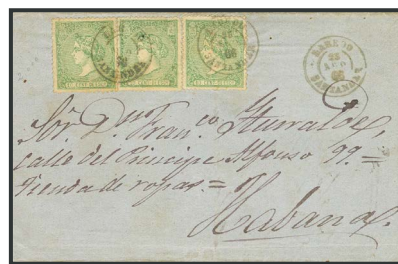 SANTANDER
Sor. Dn. Fran.co Iturralde,
calle del Principe Alfonso 99. =
Tienda de ropas. =
Habana.